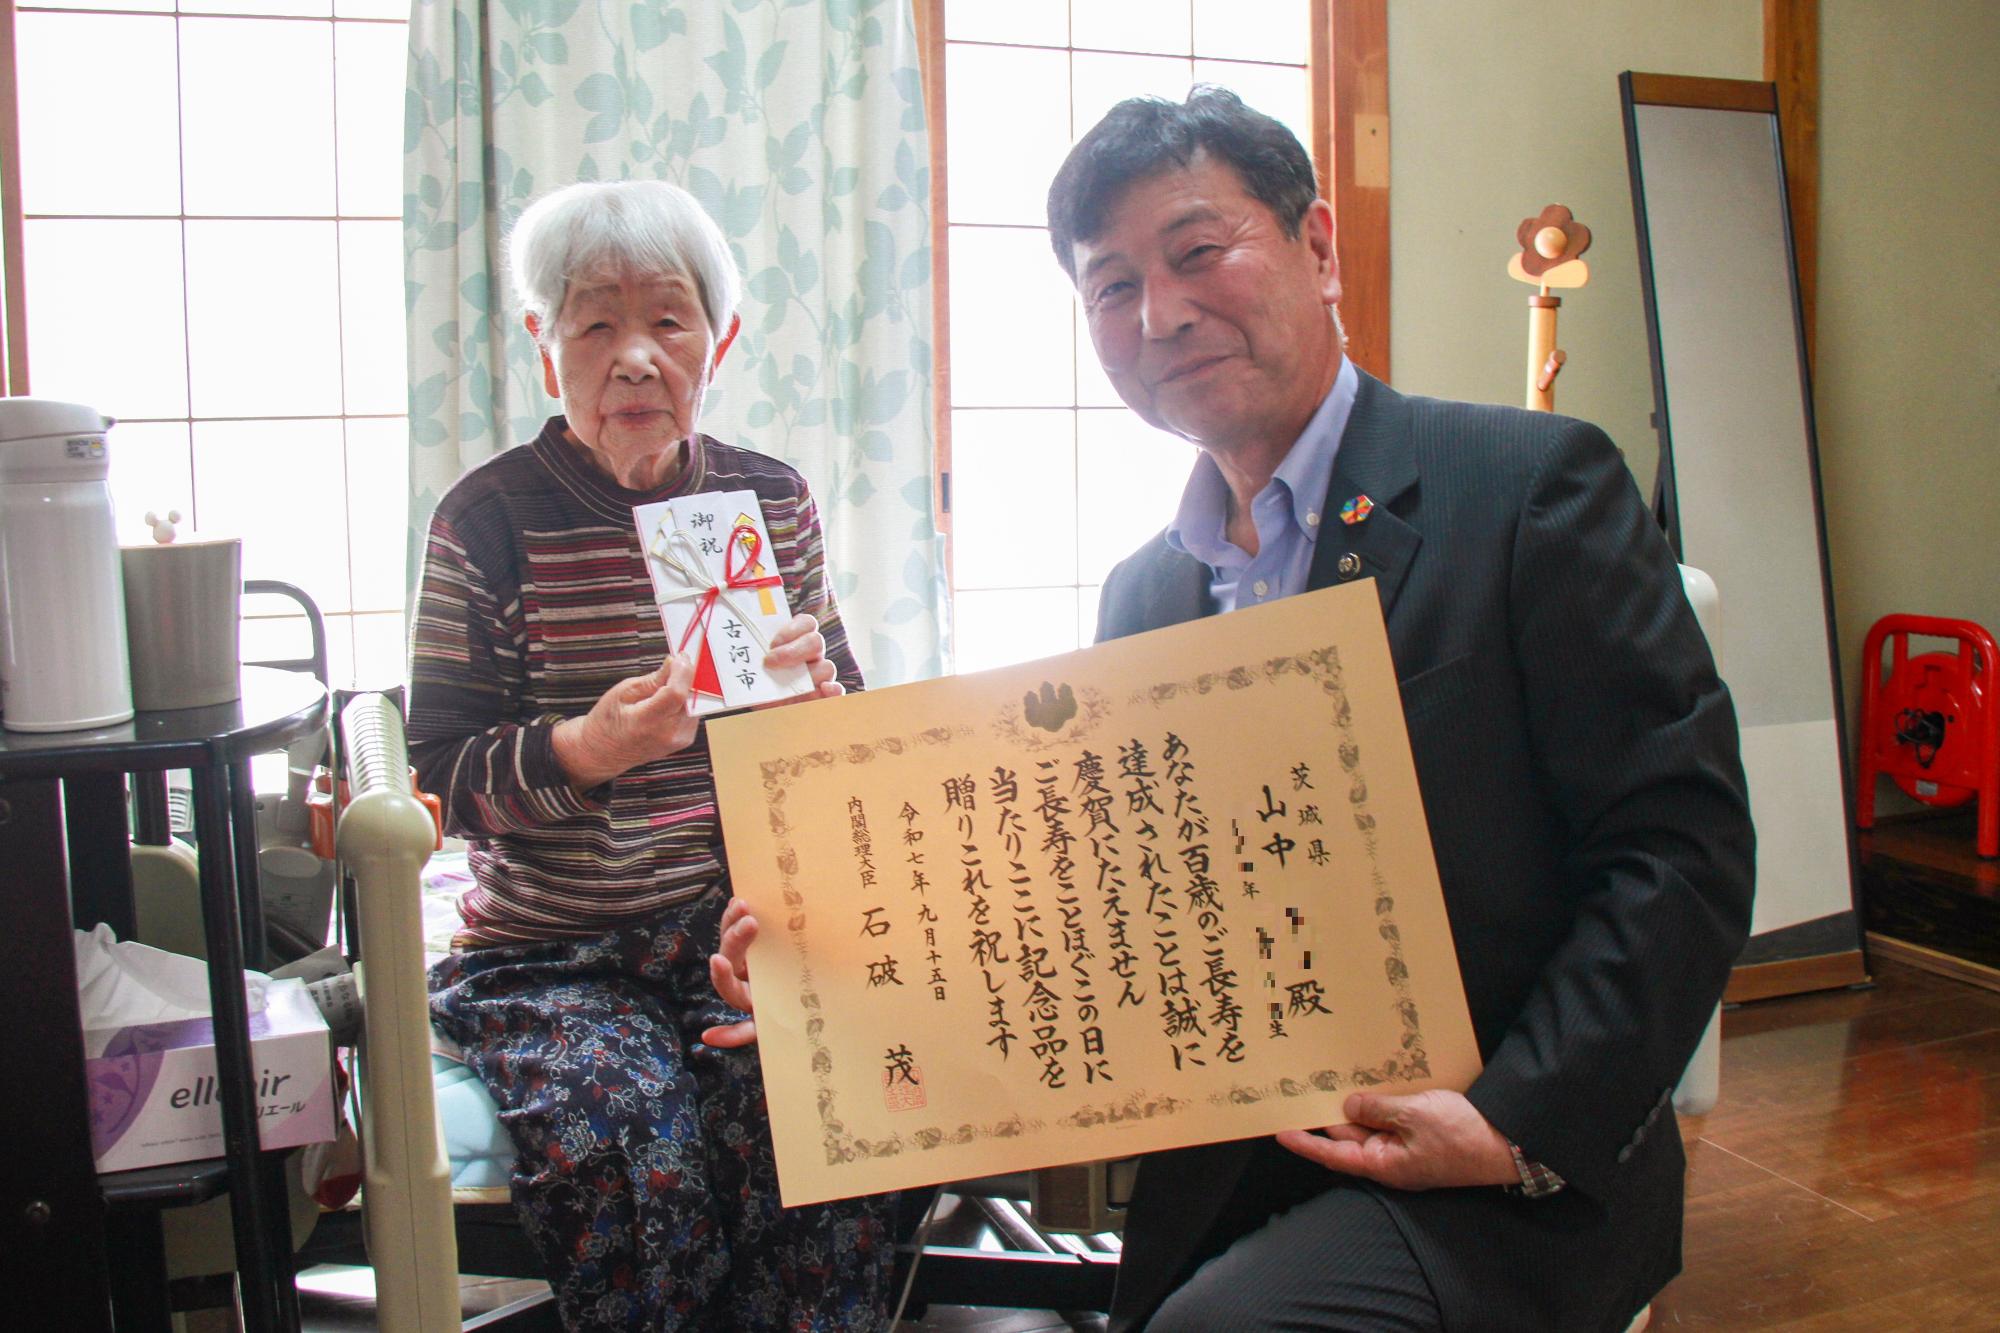 御祝
古河市
茨城県
山中 殿
年 生
あなたが百歳のご長寿を
達成されたことは誠に
慶賀にたえません
ご長寿をことほぐこの日に
当たりここに記念品を
贈りこれを祝します
令和七年九月十五日
内閣総理大臣 石破 茂
elleair
エリエール